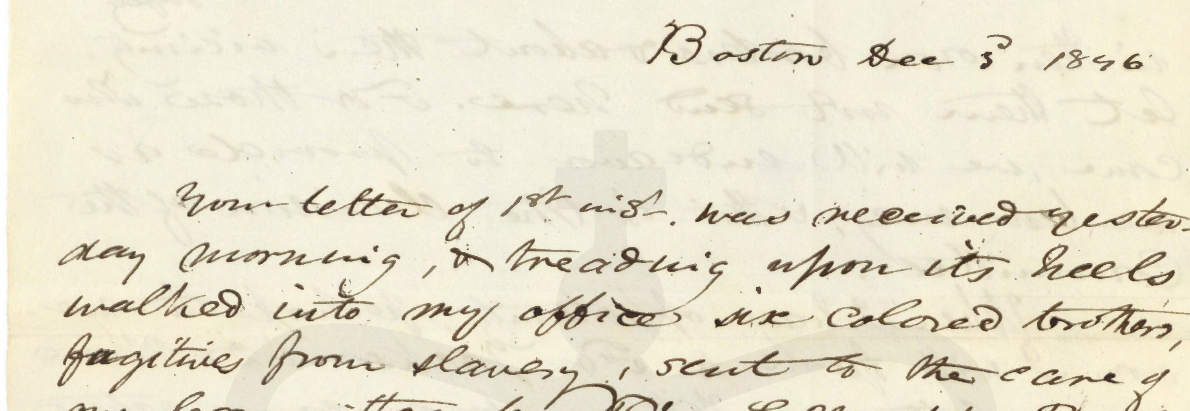 Boston Dec 3d 1846
Your letter of 1st inst. was received yester-
day morning, & treading upon its heels
walked into my office six colored brothers,
fugitives from slavery, sent to the care of
my